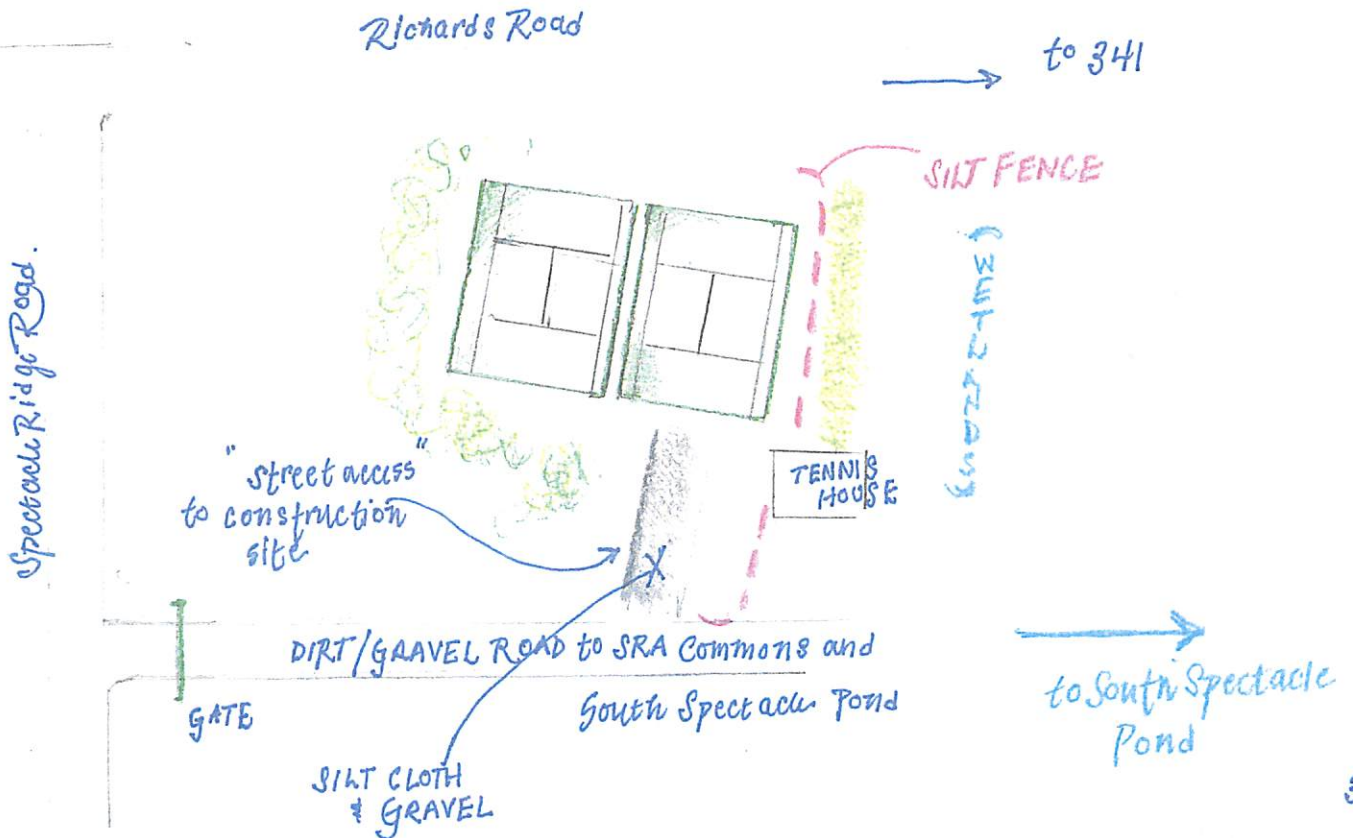 Richards Road
to 341
SILT FENCE
(WETLANDS)
Spectacle Ridge Road.
"street access"
to construction
site
TENNIS
HOUSE
DIRT/GRAVEL ROAD to SRA Commons and
South Spectacle Pond
GATE
to South Spectacle
Pond
SILT CLOTH
& GRAVEL
3